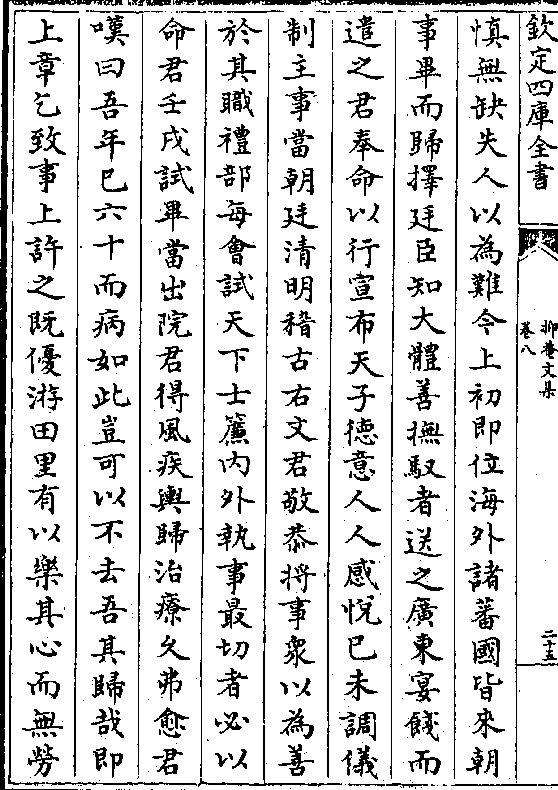 欽定四庫全書
抑菴文集
卷八
二十五
慎無缺失人以為難今上初即位海外諸蕃國皆來朝
事畢而歸擇廷臣知大體善撫馭者送之廣東宴餞而
遣之君奉命以行宣布天子徳意人人感悅已未調儀
制主事當朝廷清明稽古右文君敬恭將事衆以為善
於其職禮部每會試天下士簾内外執事最切者必以
命君壬戌試畢當出院君得風疾輿歸治療久弗愈君
嘆曰吾年巳六十而病如此豈可以不去吾其歸哉即
上章乞致事上許之既優游田里有以樂其心而無勞